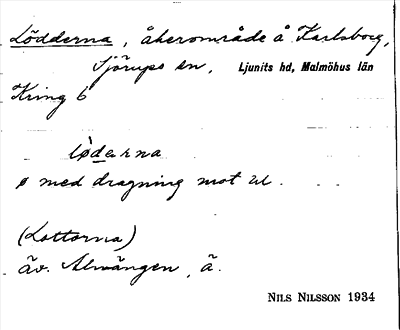 Lödderna, åkerområde å Karlsborg,
Sjörups sn, Ljunits hd, Malmöhus län
Kring 6
lø̀derna
ø med dragning mot œ.
(Lottorna)
äv. Almängen, ä.
NILS NILSSON 1934